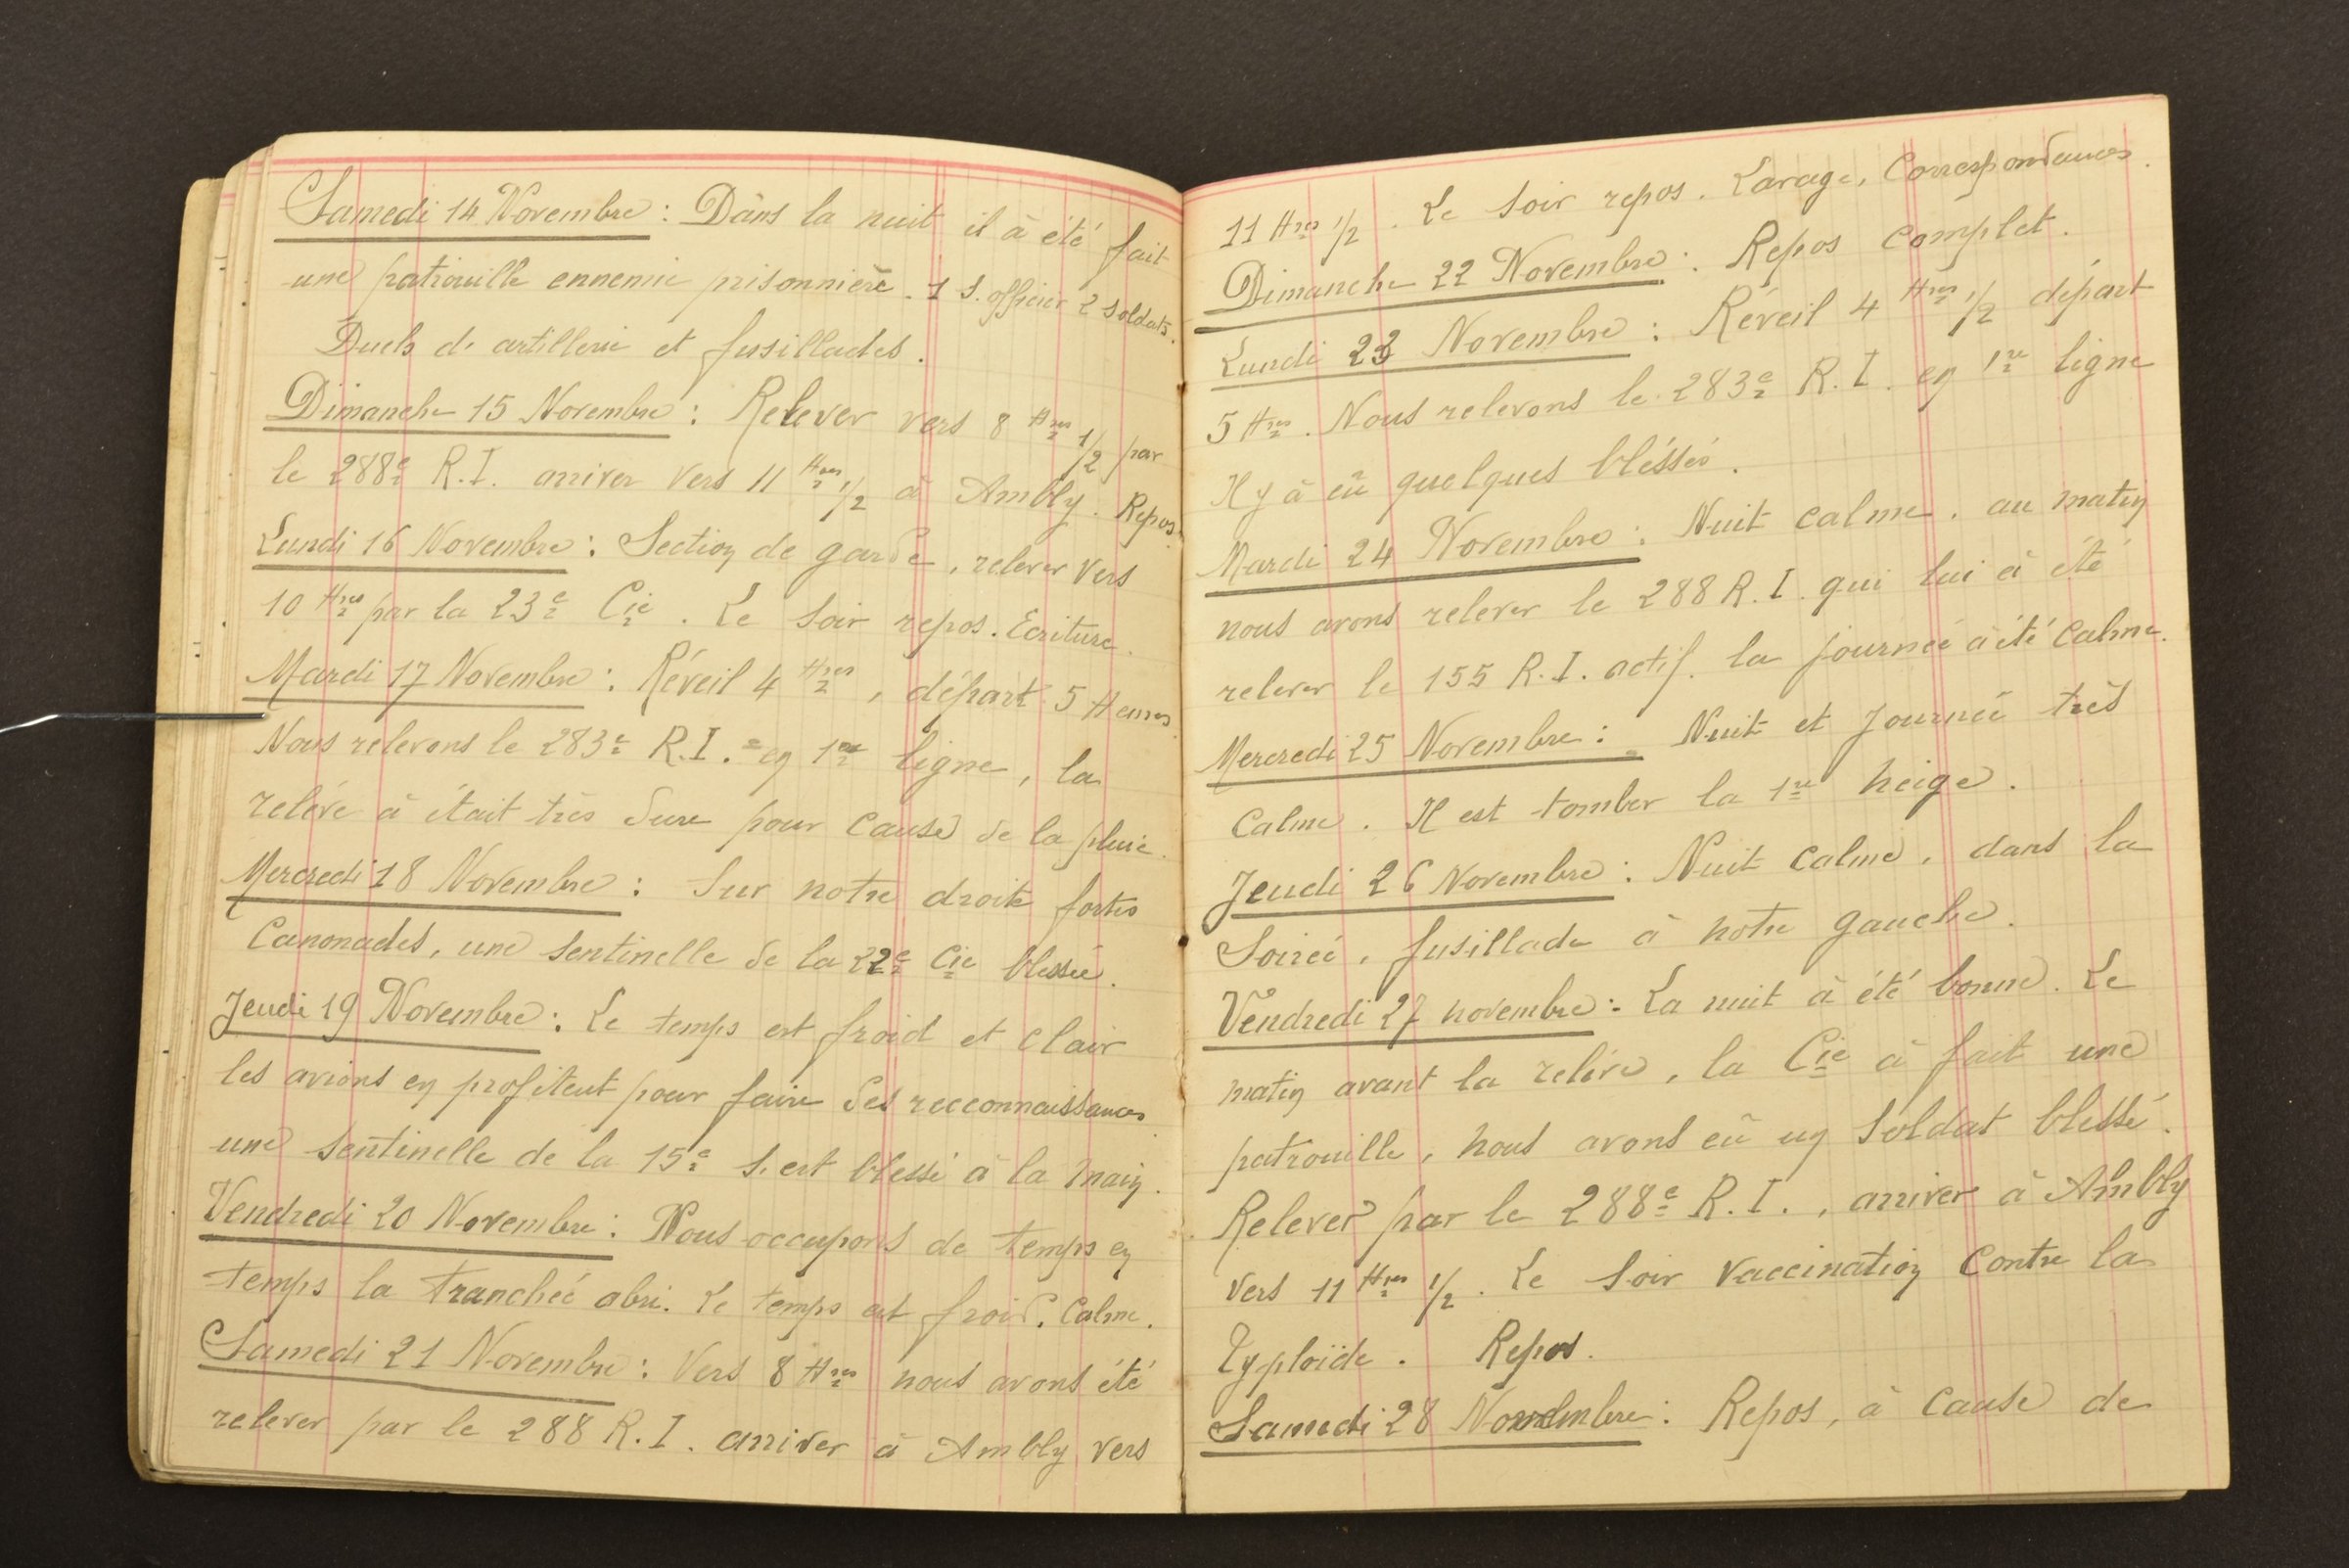 Samedi 14 Novembre : Dans la nuit il à été fait
une patrouille ennemie prisonnière. 1 S. officier 2 soldats.
Duels de artillerie et fusillades.
Dimanche 15 Novembre : Relever vers 8 Hres 1/2 par
le 288e R.I. arriver vers 11 Hres 1/2 à Ambly. Repos.
Lundi 16 Novembre : Section de garde, relever vers
10 Hres par la 23e Cie. Le soir repos. Ecriture.
Mardi 17 Novembre : Réveil 4 Hres, départ 5 Heures
Nous relevons le 283e R.I. en 1re ligne, la
relève à était très dure pour cause de la pluie.
Mercredi 18 Novembre : Sur notre droite fortes
Canonades, une sentinelle de la 22e Cie blessée.
Jeudi 19 Novembre : Le temps est froid et clair
les avions en profitent pour faire des recconnaissances
une sentinelle de la 15e s. est blessé à la main.
Vendredi 20 Novembre : Nous occupons de temps en
temps la tranchée abri. Le temps est froid. Calme.
Samedi 21 Novembre : Vers 8 Hres nous avons été
relever par le 288 R.I. arriver à Ambly vers
11 Hres 1/2. Le soir repos. Lavage, Correspondances.
Dimanche 22 Novembre : Repos complet.
Lundi 23 Novembre : Réveil 4 Hres 1/2 départ
5 Hres. Nous relevons le 283e R.I. en 1re ligne
Il y à eû quelques bléssés.
Mardi 24 Novembre : Nuit calme. au matin
nous avons relever le 288 R.I. qui lui à été
relever le 155 R.I. actif. la journée à été calme.
Mercredi 25 Novembre : Nuit et Journée très
Calme. Il est tomber la 1re neige.
Jeudi 26 Novembre : Nuit calme, dans la
Soirée, fusillade à notre gauche.
Vendredi 27 novembre : La nuit à été bonne. Le
matin avant la relève, la Cie à fait une
patrouille, nous avons eû un soldat blessé.
Relever par le 288e R.I., arriver à Ambly
vers 11 Hres 1/2. Le soir vaccination contre la
Typloïde. Repos.
Samedi 28 Novembre : Repos, à cause de